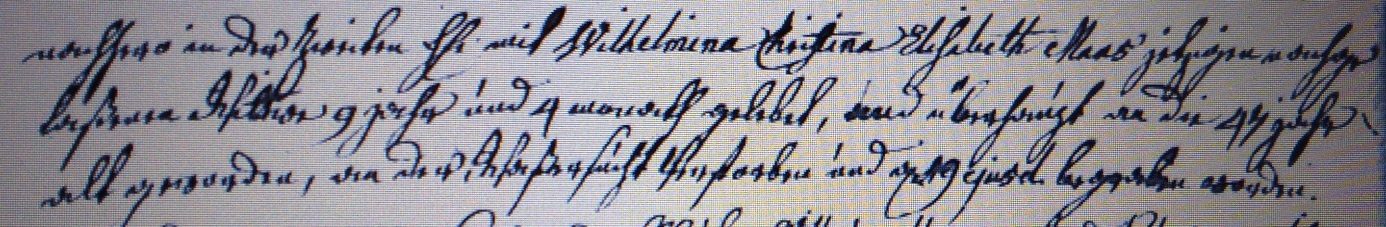 nachhero in der Zweiten Ehe mit Wilhelmina Christina Elisabeth Maas jetzigen nachge
laßenen Wittwe 9 jahr und 4 monath gelebet, und überhaupt an die 44 jahr
alt geworden, an der Waßersucht verstorben und 19 ejusd. begraben worden.